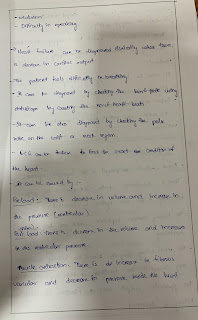 - Difficulty in speaking
* Heart failure can be diagnosed clinically when there
is decrease in cardiac output
The patient feels difficulty in breathing
- It can be diagnosed by checking the heart beats using
stethoscope by counting the heart beats
- It can be also diagnosed by checking the pulse
rate on the wrist or neck region
- ECG can be done to find the exact condition of
the heart
It can be caused by:
Preload: There is decrease in volume and increase in
the pressure (ventricular)
After load: There is decrease in the volume and increase
in the ventricular pressure.
Muscle contraction: There is an increase in fibrous
and decrease in pressure inside the heart